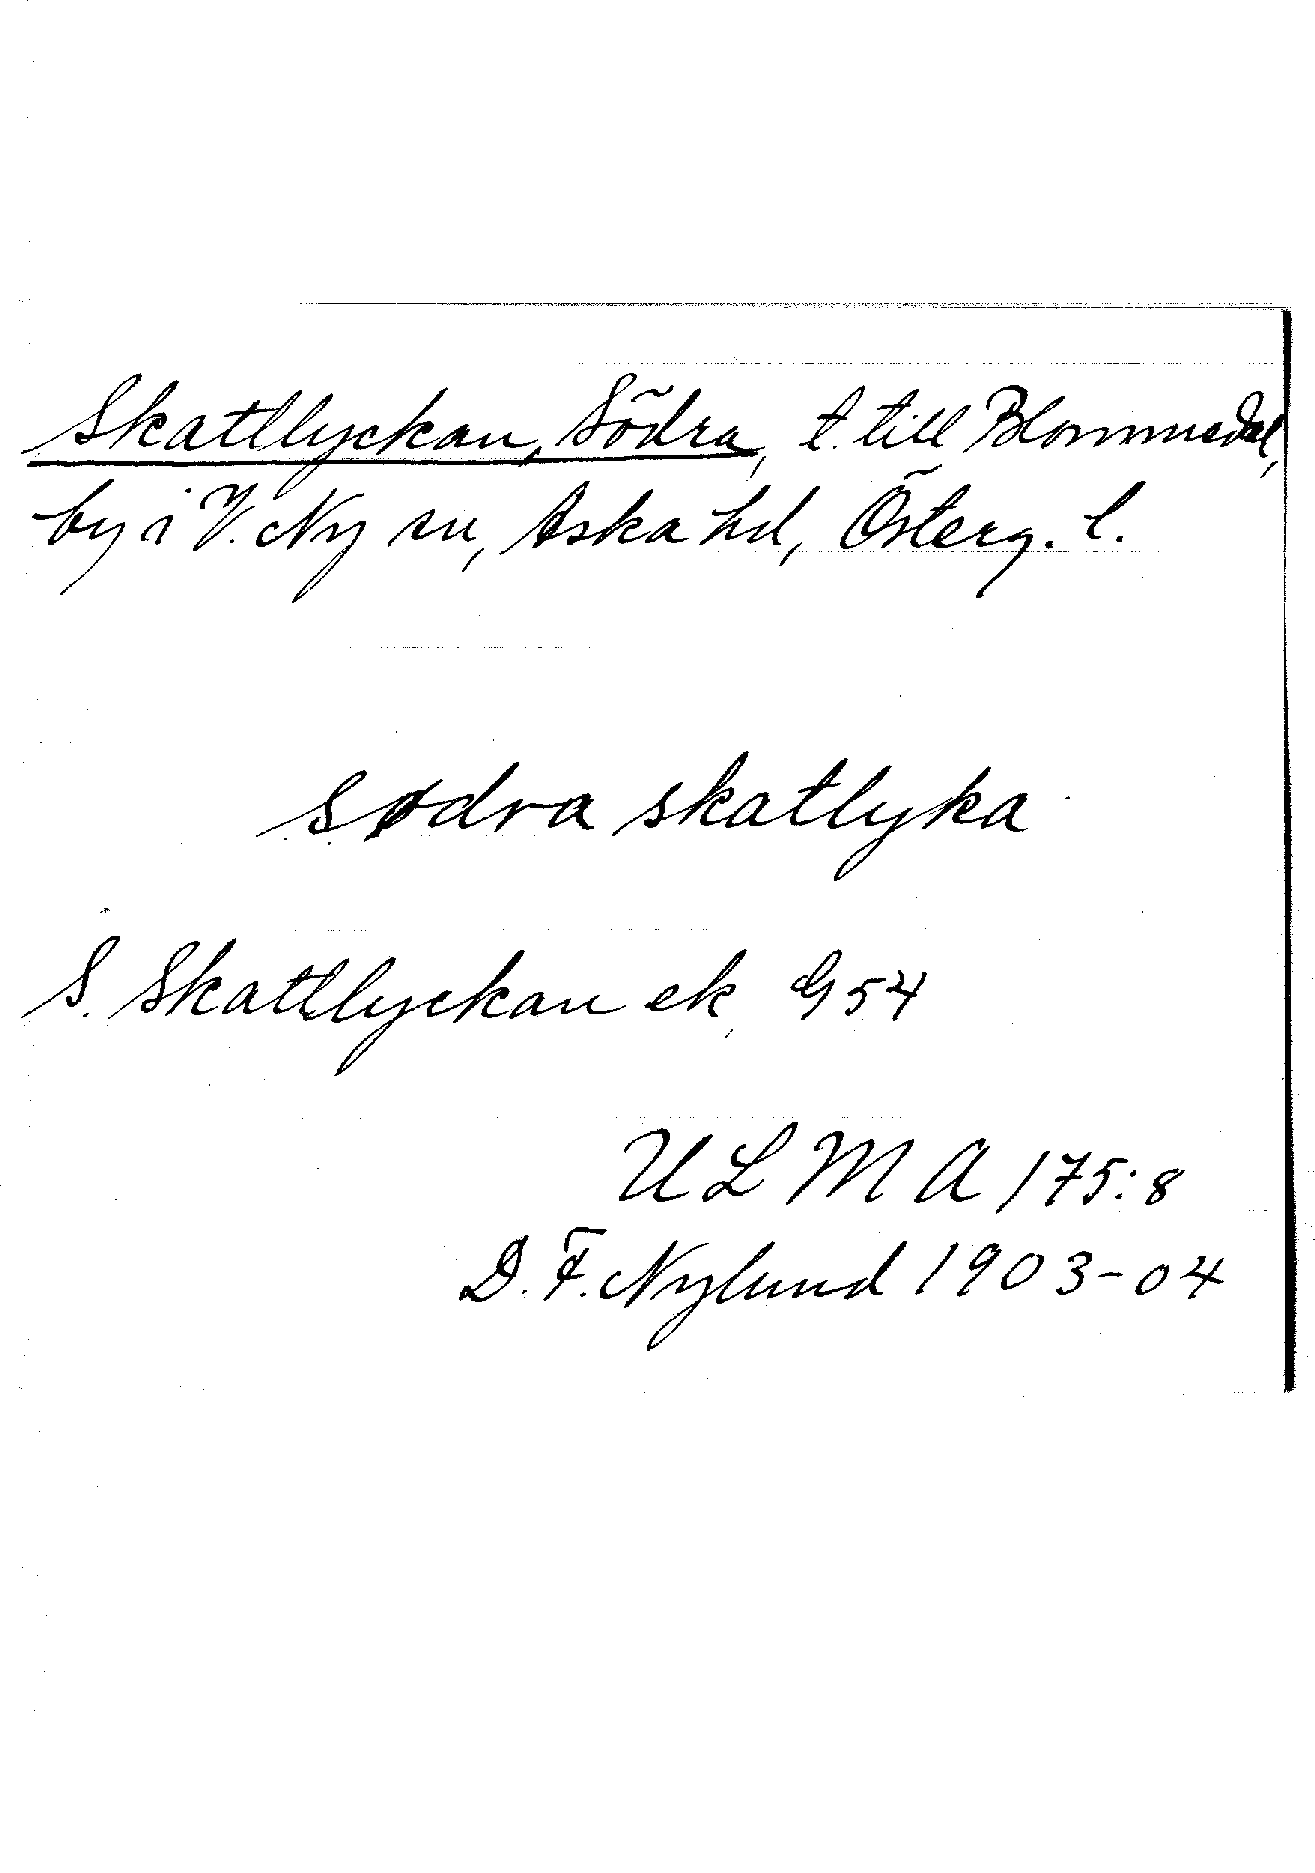 Skattlyckan, Södra, t. till Blommedal,
by i V. Ny sn, Aska hd, Österg. l.
sødra skatlyka
S. Skattlyckan ek. G 54
ULMA 175:8
D. F. Nylund 1903-04